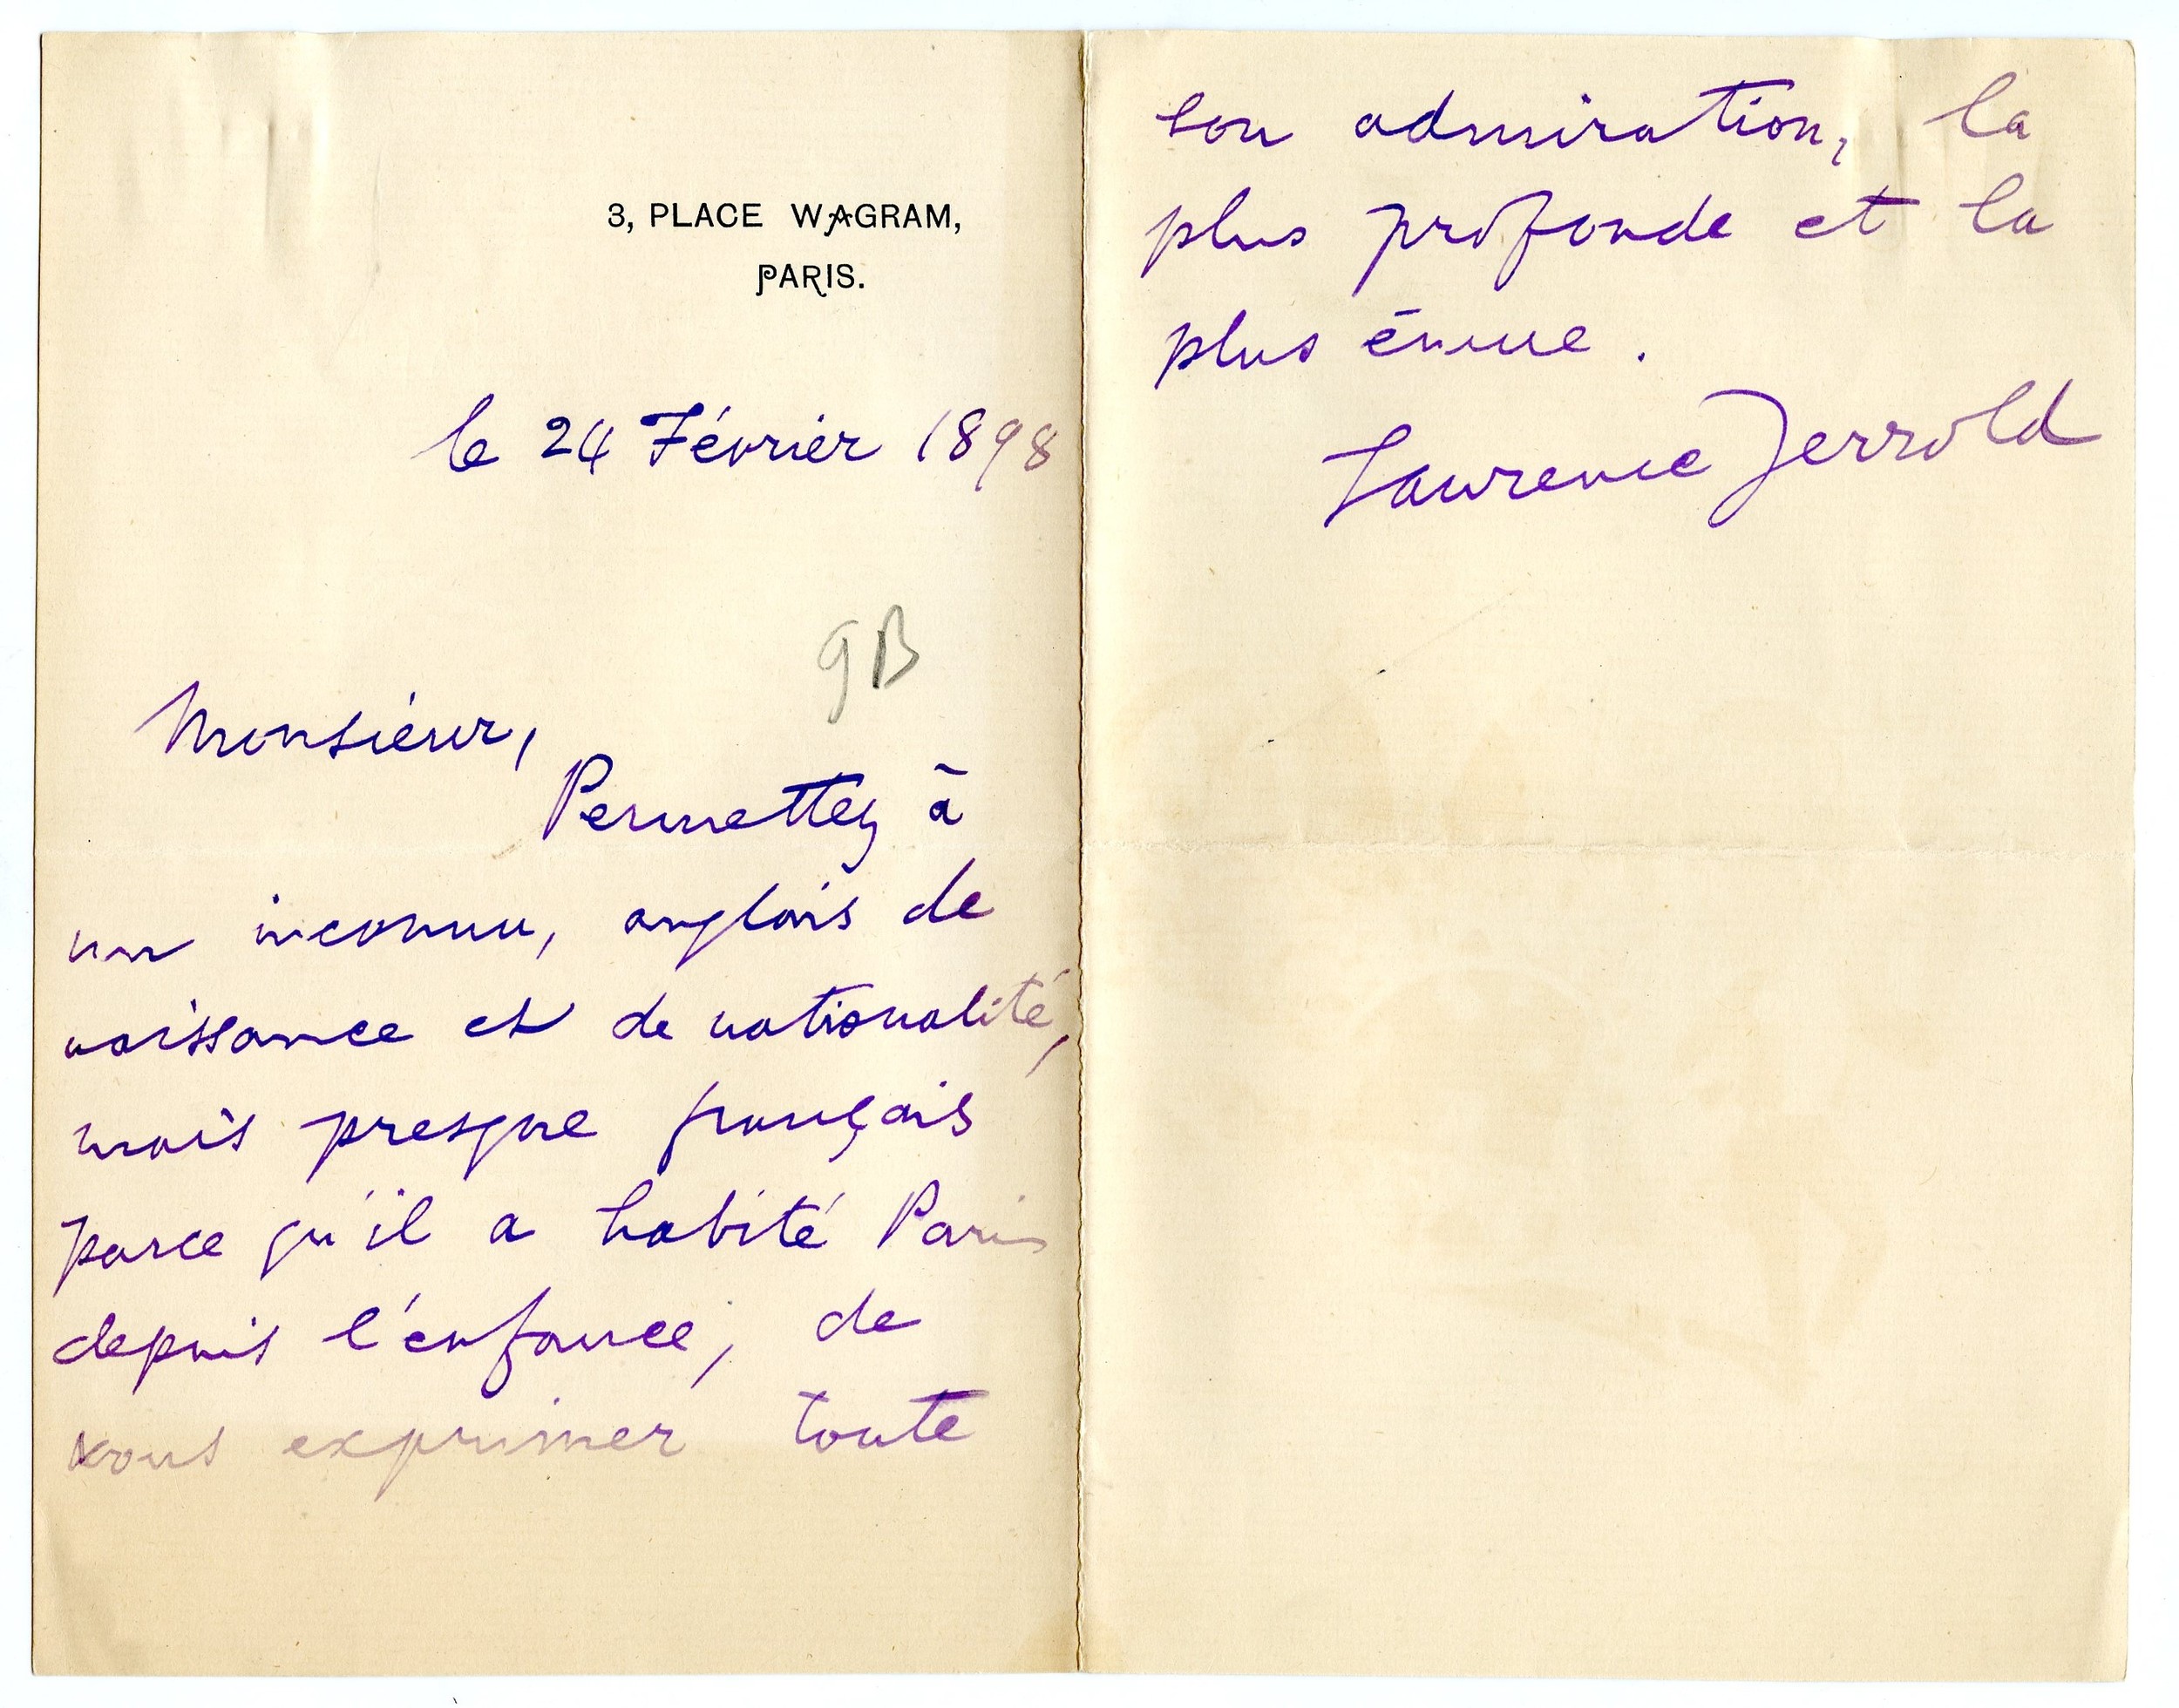 3, PLACE WAGRAM,
PARIS.
le 24 Février 1898
GB
Monsieur,
Permettez à
un inconnu, anglais de
naissance et de nationalité,
mais presque français
parce qu'il a habité Paris
depuis l'enfance, de
vous exprimer toute
son admiration, la
plus profonde et la
plus émue.
Laurence Jerrold